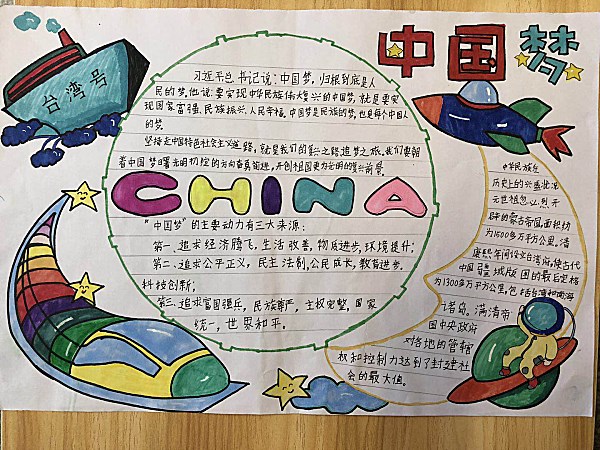 中国梦
台湾号
习近平总书记说:中国梦,归根到底是人
民的梦,他说:要实现中华民族伟大复兴的中国梦,就是要实
现国家富强、民族振兴、人民幸福。中国梦是民族的梦,也是每个中国人
的梦。
坚持走中国特色社会主义道路,就是我们的复兴之路追梦之旅。我们要朝
着中国梦曙光明初绽的方向奋勇前进,开创祖国更为光明的复兴前景。
CHINA
"中国梦"的主要动力有三大来源:
第一、追求经济腾飞,生活改善,物质进步,环境提升;
第二、追求公平正义,民主法制,公民成长,教育进步,
科技创新;
第三、追求富国强兵,民族尊严,主权完整,国家
统一,世界和平。
中华民族在
历史上的兴盛状况
元世祖忽必烈开
辟的蒙古帝国,面积约
为1600多万平方公里,清
康熙年间设立台湾府,使古代
中国疆域版图的最后定格
为1300多万平方公里,包括台湾和南海
诸岛。满清帝
国中央政府
对各地的管辖
权和控制力达到了封建社
会的最大值。